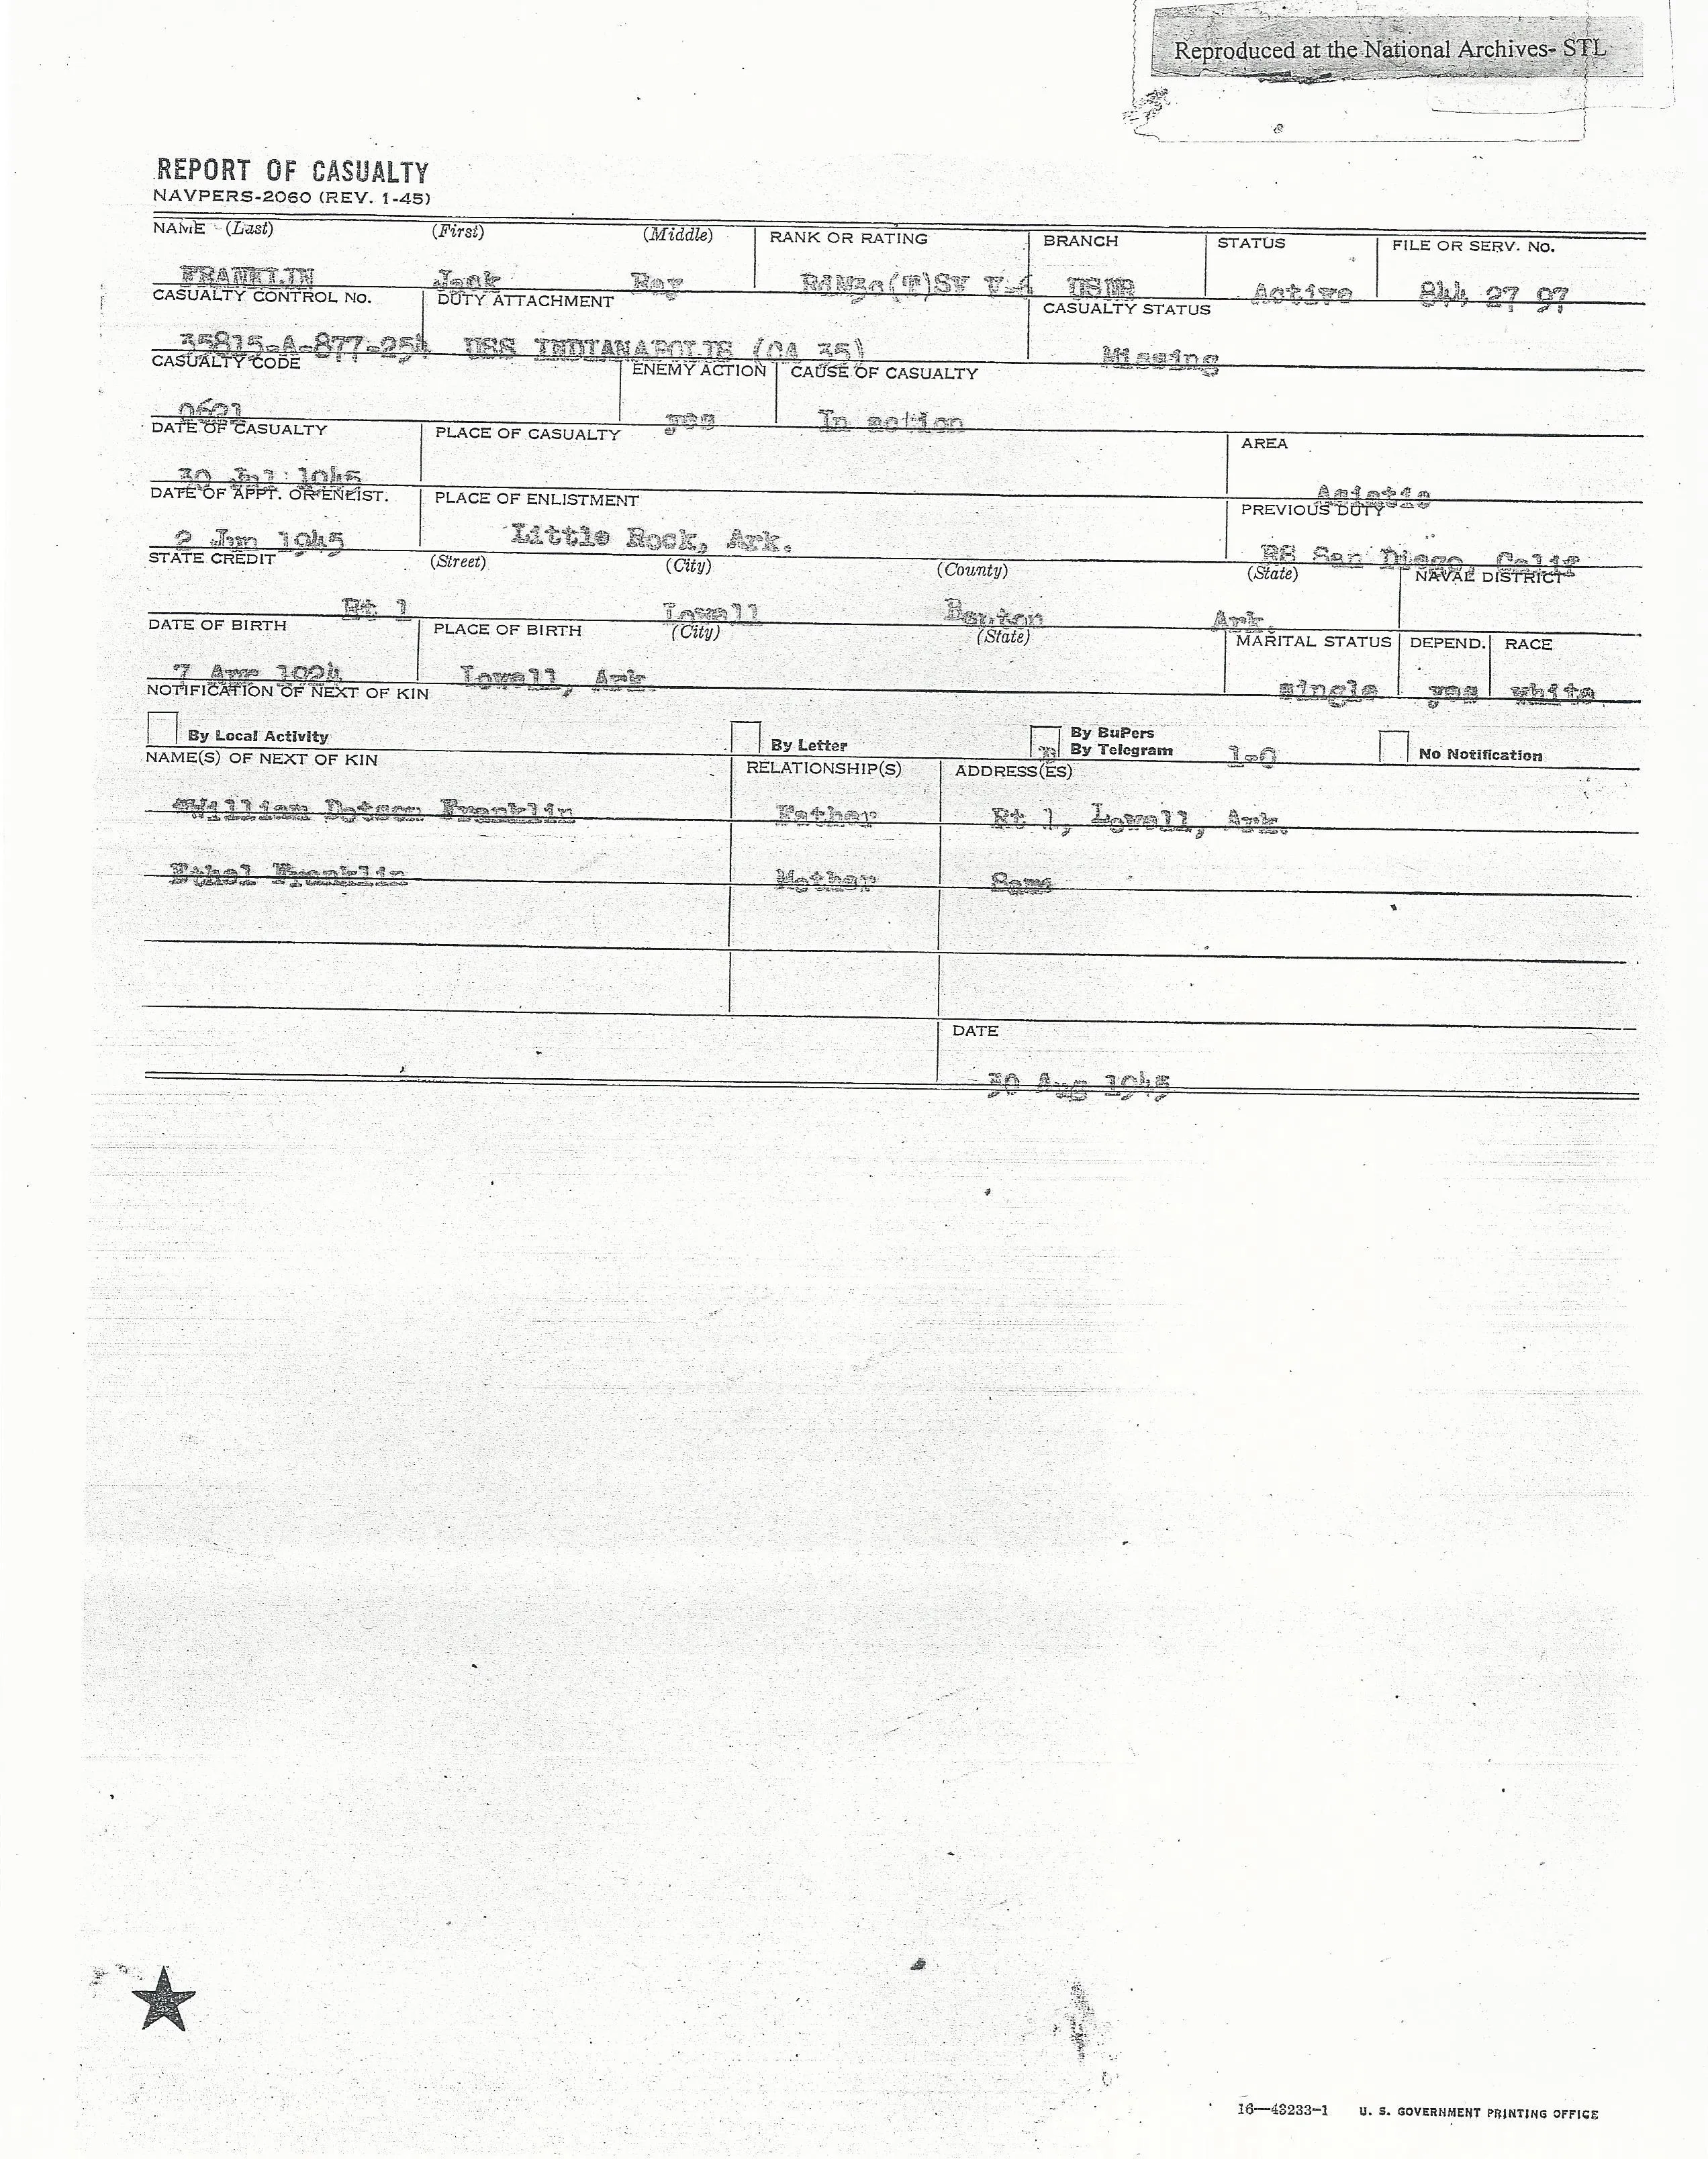 Reproduced at the National Archives- STL
REPORT OF CASUALTY
NAVPERS-2060 (REV. 1-45)
NAME (Last) (First) (Middle) RANK OR RATING BRANCH STATUS FILE OR SERV. No.
FRANKLIN Jack Ray (T)SV V-6 USNR Active 844 27 97
CASUALTY CONTROL No. DUTY ATTACHMENT CASUALTY STATUS
35815-A-877-254 USS INDIANAPOLIS (CA 35) Missing
CASUALTY CODE ENEMY ACTION CAUSE OF CASUALTY
0621 yes In action
DATE OF CASUALTY PLACE OF CASUALTY AREA
30 Jul 1945 Asiatic
DATE OF APPT. OR ENLIST. PLACE OF ENLISTMENT PREVIOUS DUTY
2 1945 Little Rock, Ark. RS San Diego, Calif
STATE CREDIT (Street) (City) (County) (State) NAVAL DISTRICT
Rt 1 Lowell Benton Ark.
DATE OF BIRTH PLACE OF BIRTH (City) (State) MARITAL STATUS DEPEND. RACE
7 Apr 1924 Lowell, Ark. single yes white
NOTIFICATION OF NEXT OF KIN
By Local Activity By Letter By BuPers By Telegram 1-0 No Notification
NAME(S) OF NEXT OF KIN RELATIONSHIP(S) ADDRESS(ES)
*William Dotson Franklin Father Rt 1, Lowell, Ark.
Ethel Franklin Mother Same
DATE
30 Aug 1945
16—43233-1 U. S. GOVERNMENT PRINTING OFFICE